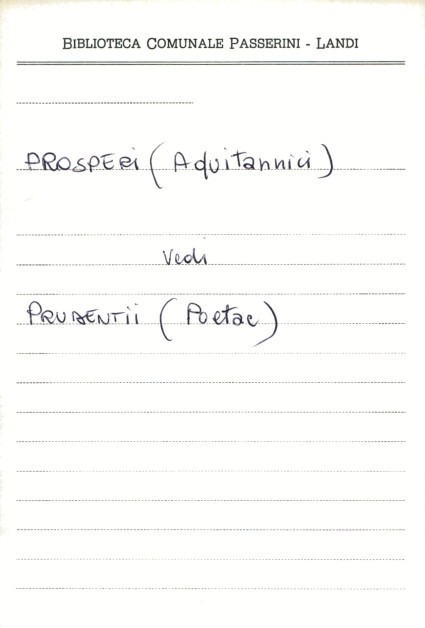 BIBLIOTECA COMUNALE PASSERINI - LANDI
PROSPERI (Aquitannici)
Vedi
PRUDENTII (Poetae)